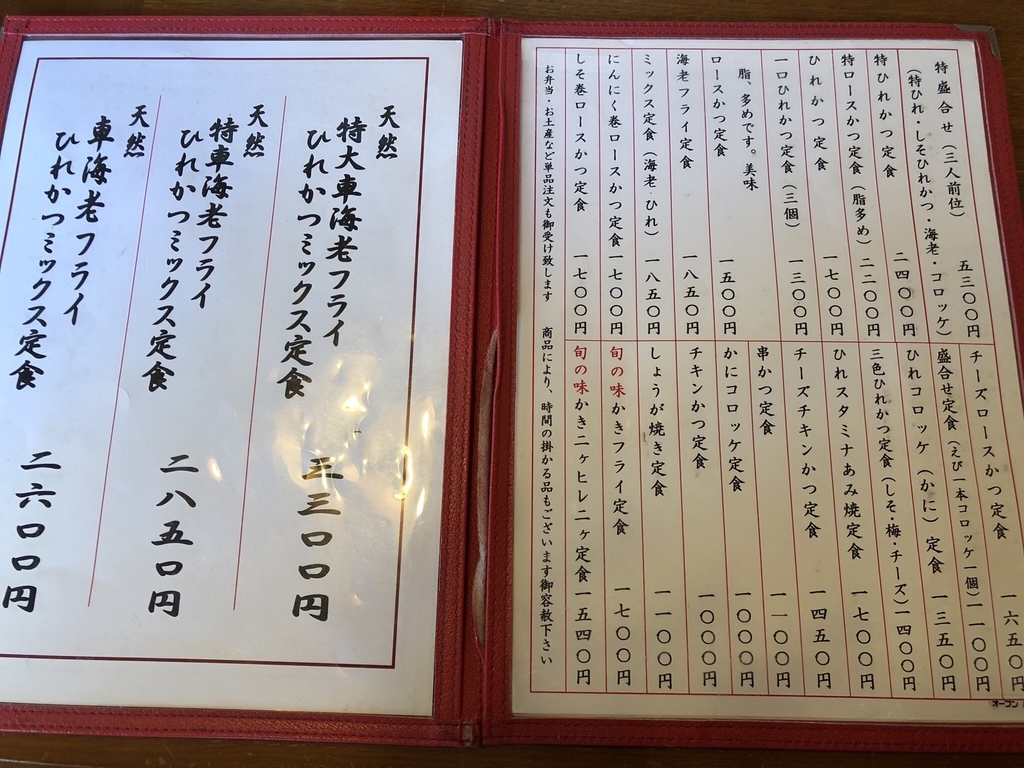 特盛合せ(三人前位) 五三〇〇円
(特ひれ・しそひれかつ・海老・コロッケ)
特ひれかつ定食 二四〇〇円
特ロースかつ定食(脂多め) 二二〇〇円
ひれかつ定食 一七〇〇円
一口ひれかつ定食(三個) 一三〇〇円
脂、多めです。美味
ロースかつ定食 一五〇〇円
海老フライ定食 一八五〇円
ミックス定食(海老・ひれ) 一八五〇円
にんにく巻ロースかつ定食 一七〇〇円
しそ巻ロースかつ定食 一七〇〇円
チーズロースかつ定食 一六五〇円
盛合せ定食(えび一本コロッケ一個) 一一〇〇円
ひれコロッケ(かに)定食 一三五〇円
三色ひれかつ定食(しそ・梅・チーズ) 一四〇〇円
ひれスタミナあみ焼定食 一七〇〇円
チーズチキンかつ定食 一四五〇円
串かつ定食 一一〇〇円
かにコロッケ定食 一〇〇〇円
チキンかつ定食 一〇〇〇円
しょうが焼き定食 一一〇〇円
旬の味かきフライ定食 一七〇〇円
旬の味かき二ヶヒレ二ヶ定食 一五四〇円
お弁当・お土産など単品注文も御受け致します 商品により、時間の掛かる品もございます御容赦下さい
オープン
天然
特大車海老フライ
ひれかつミックス定食 三三〇〇円
天然
特車海老フライ
ひれかつミックス定食 二八五〇円
天然
車海老フライ
ひれかつミックス定食 二六〇〇円